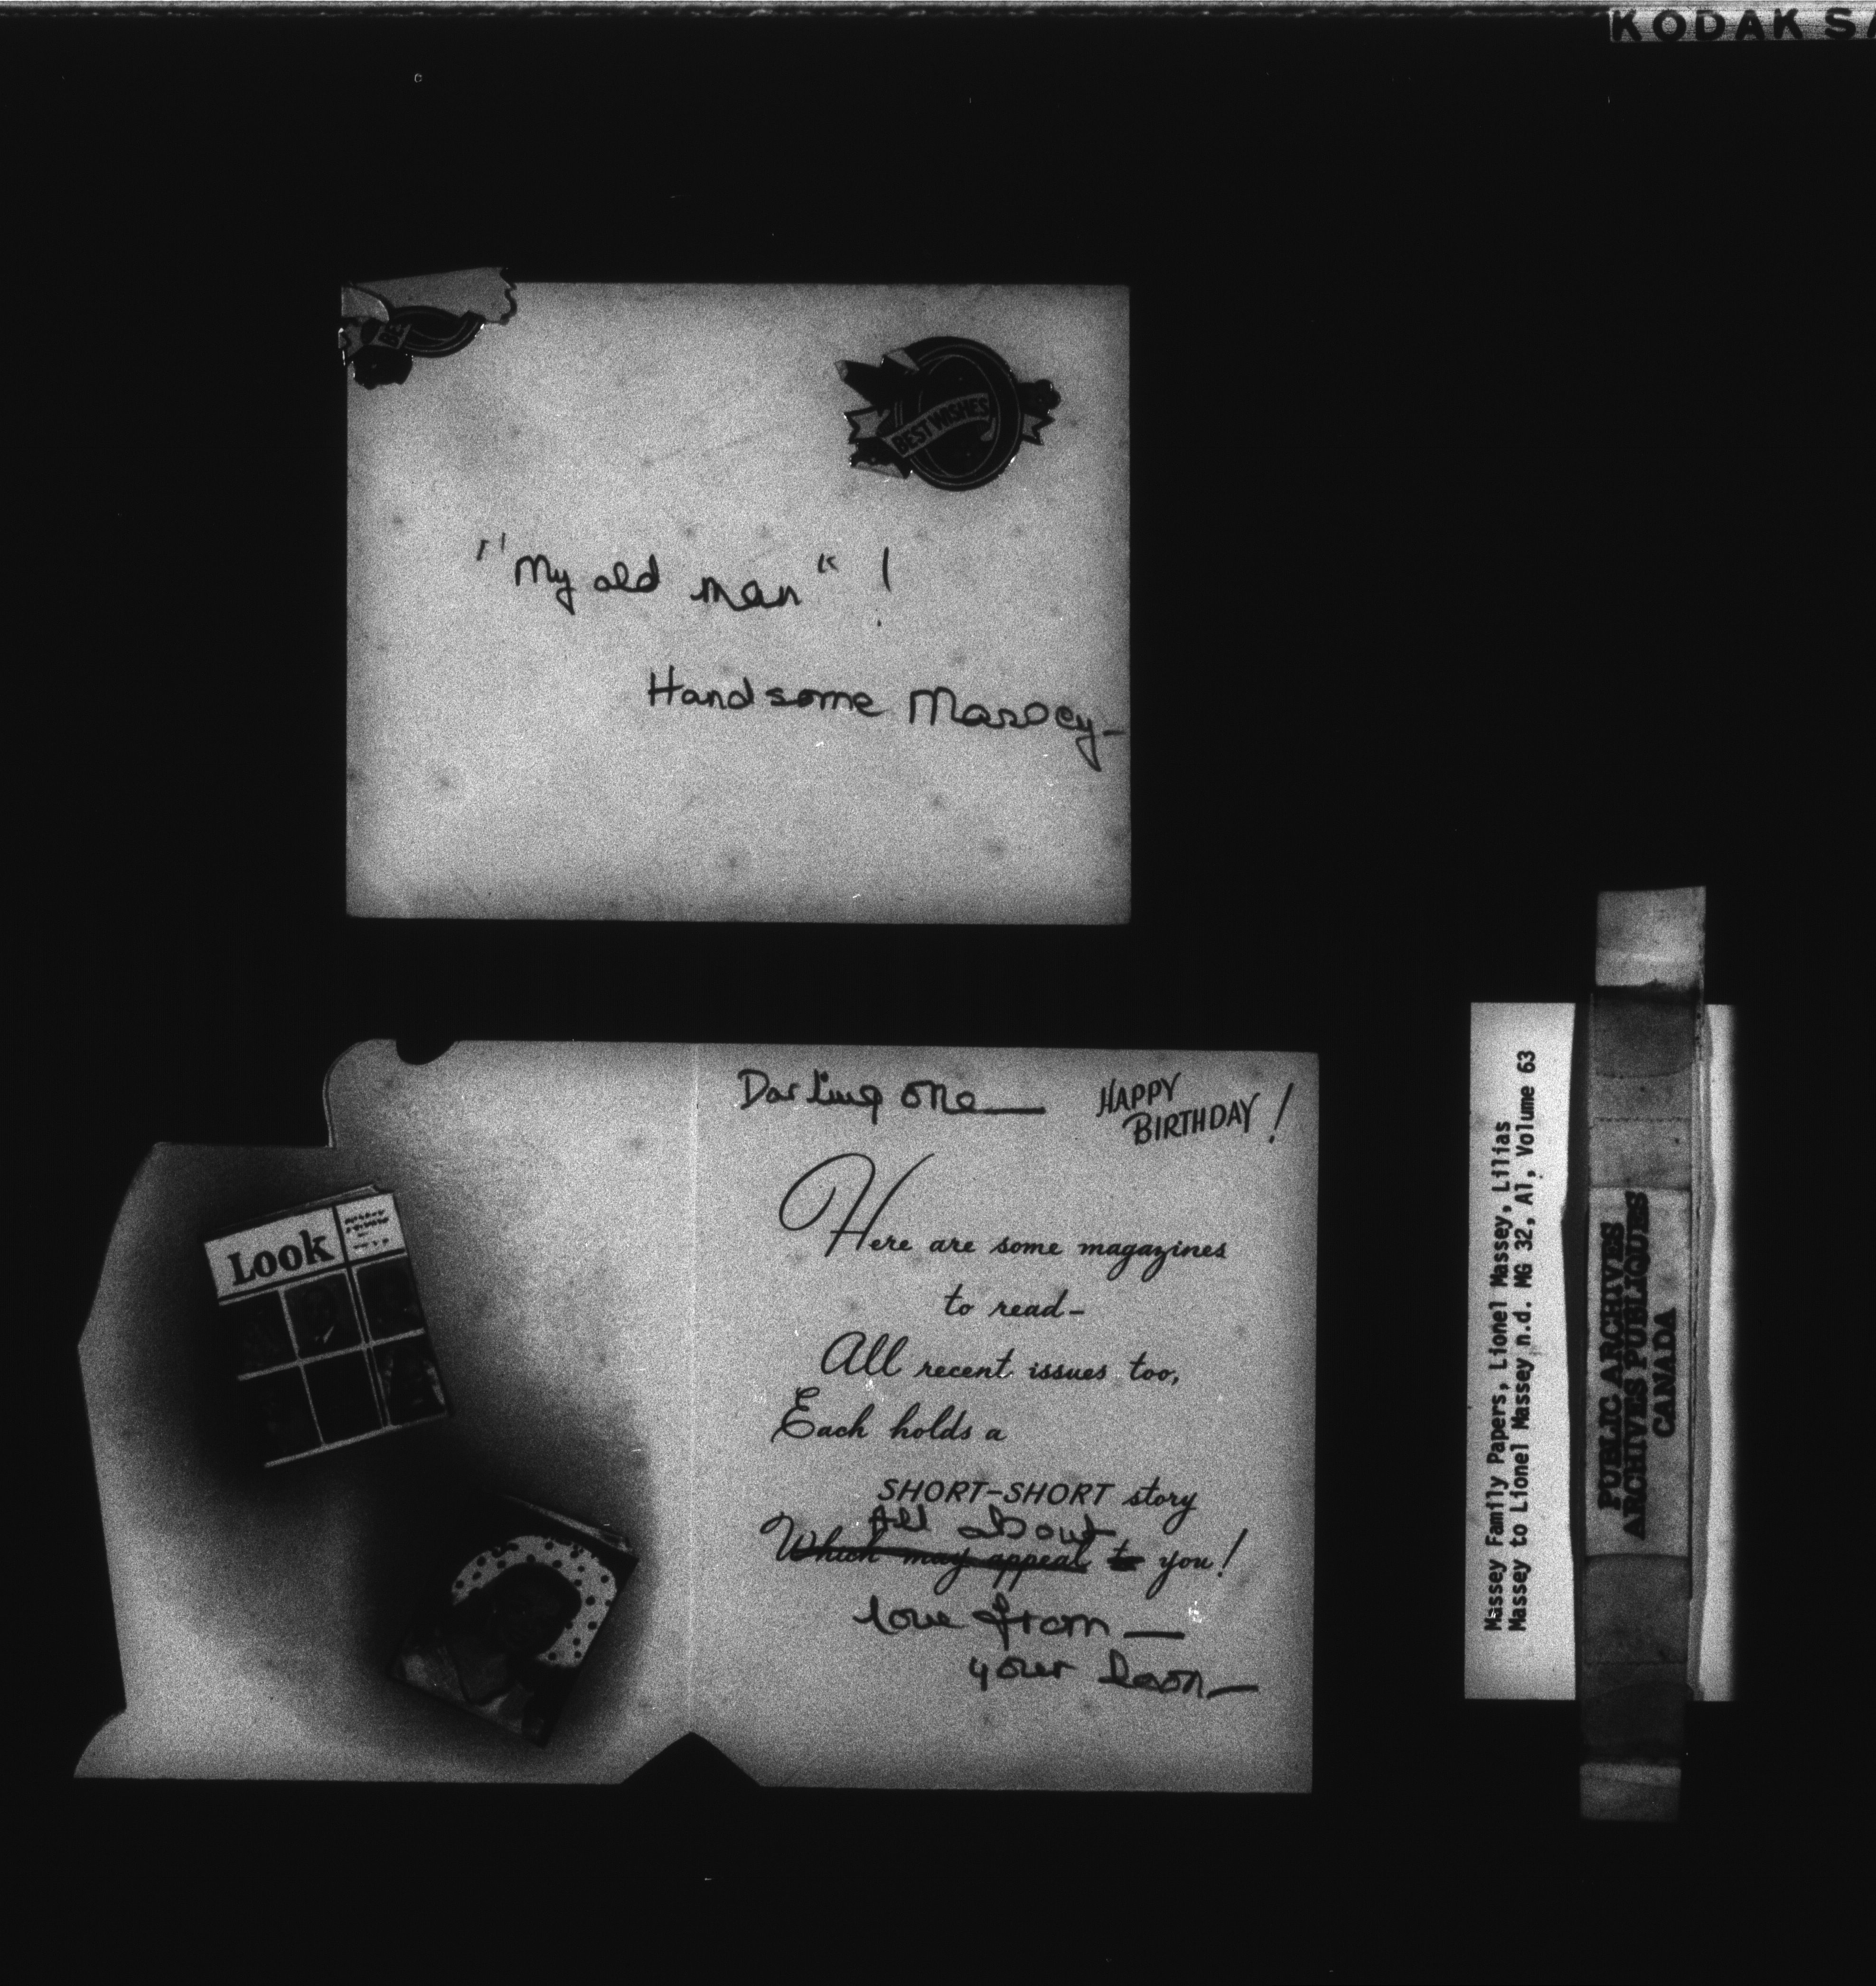 KODAK SA
BE
BEST WISHES
"My old man"!
Handsome Massey—
Darling one—
HAPPY
BIRTHDAY!
Look
Here are some magazines
to read-
All recent issues too,
Each holds a
SHORT-SHORT story
All about
Which may appeal to you!
love from —
your
Massey Family Papers, Lionel Massey, Lilias
Massey to Lionel Massey n.d. MG 32, A1, Volume 63
PUBLIC ARCHIVES
ARCHIVES PUBLIQUES
CANADA